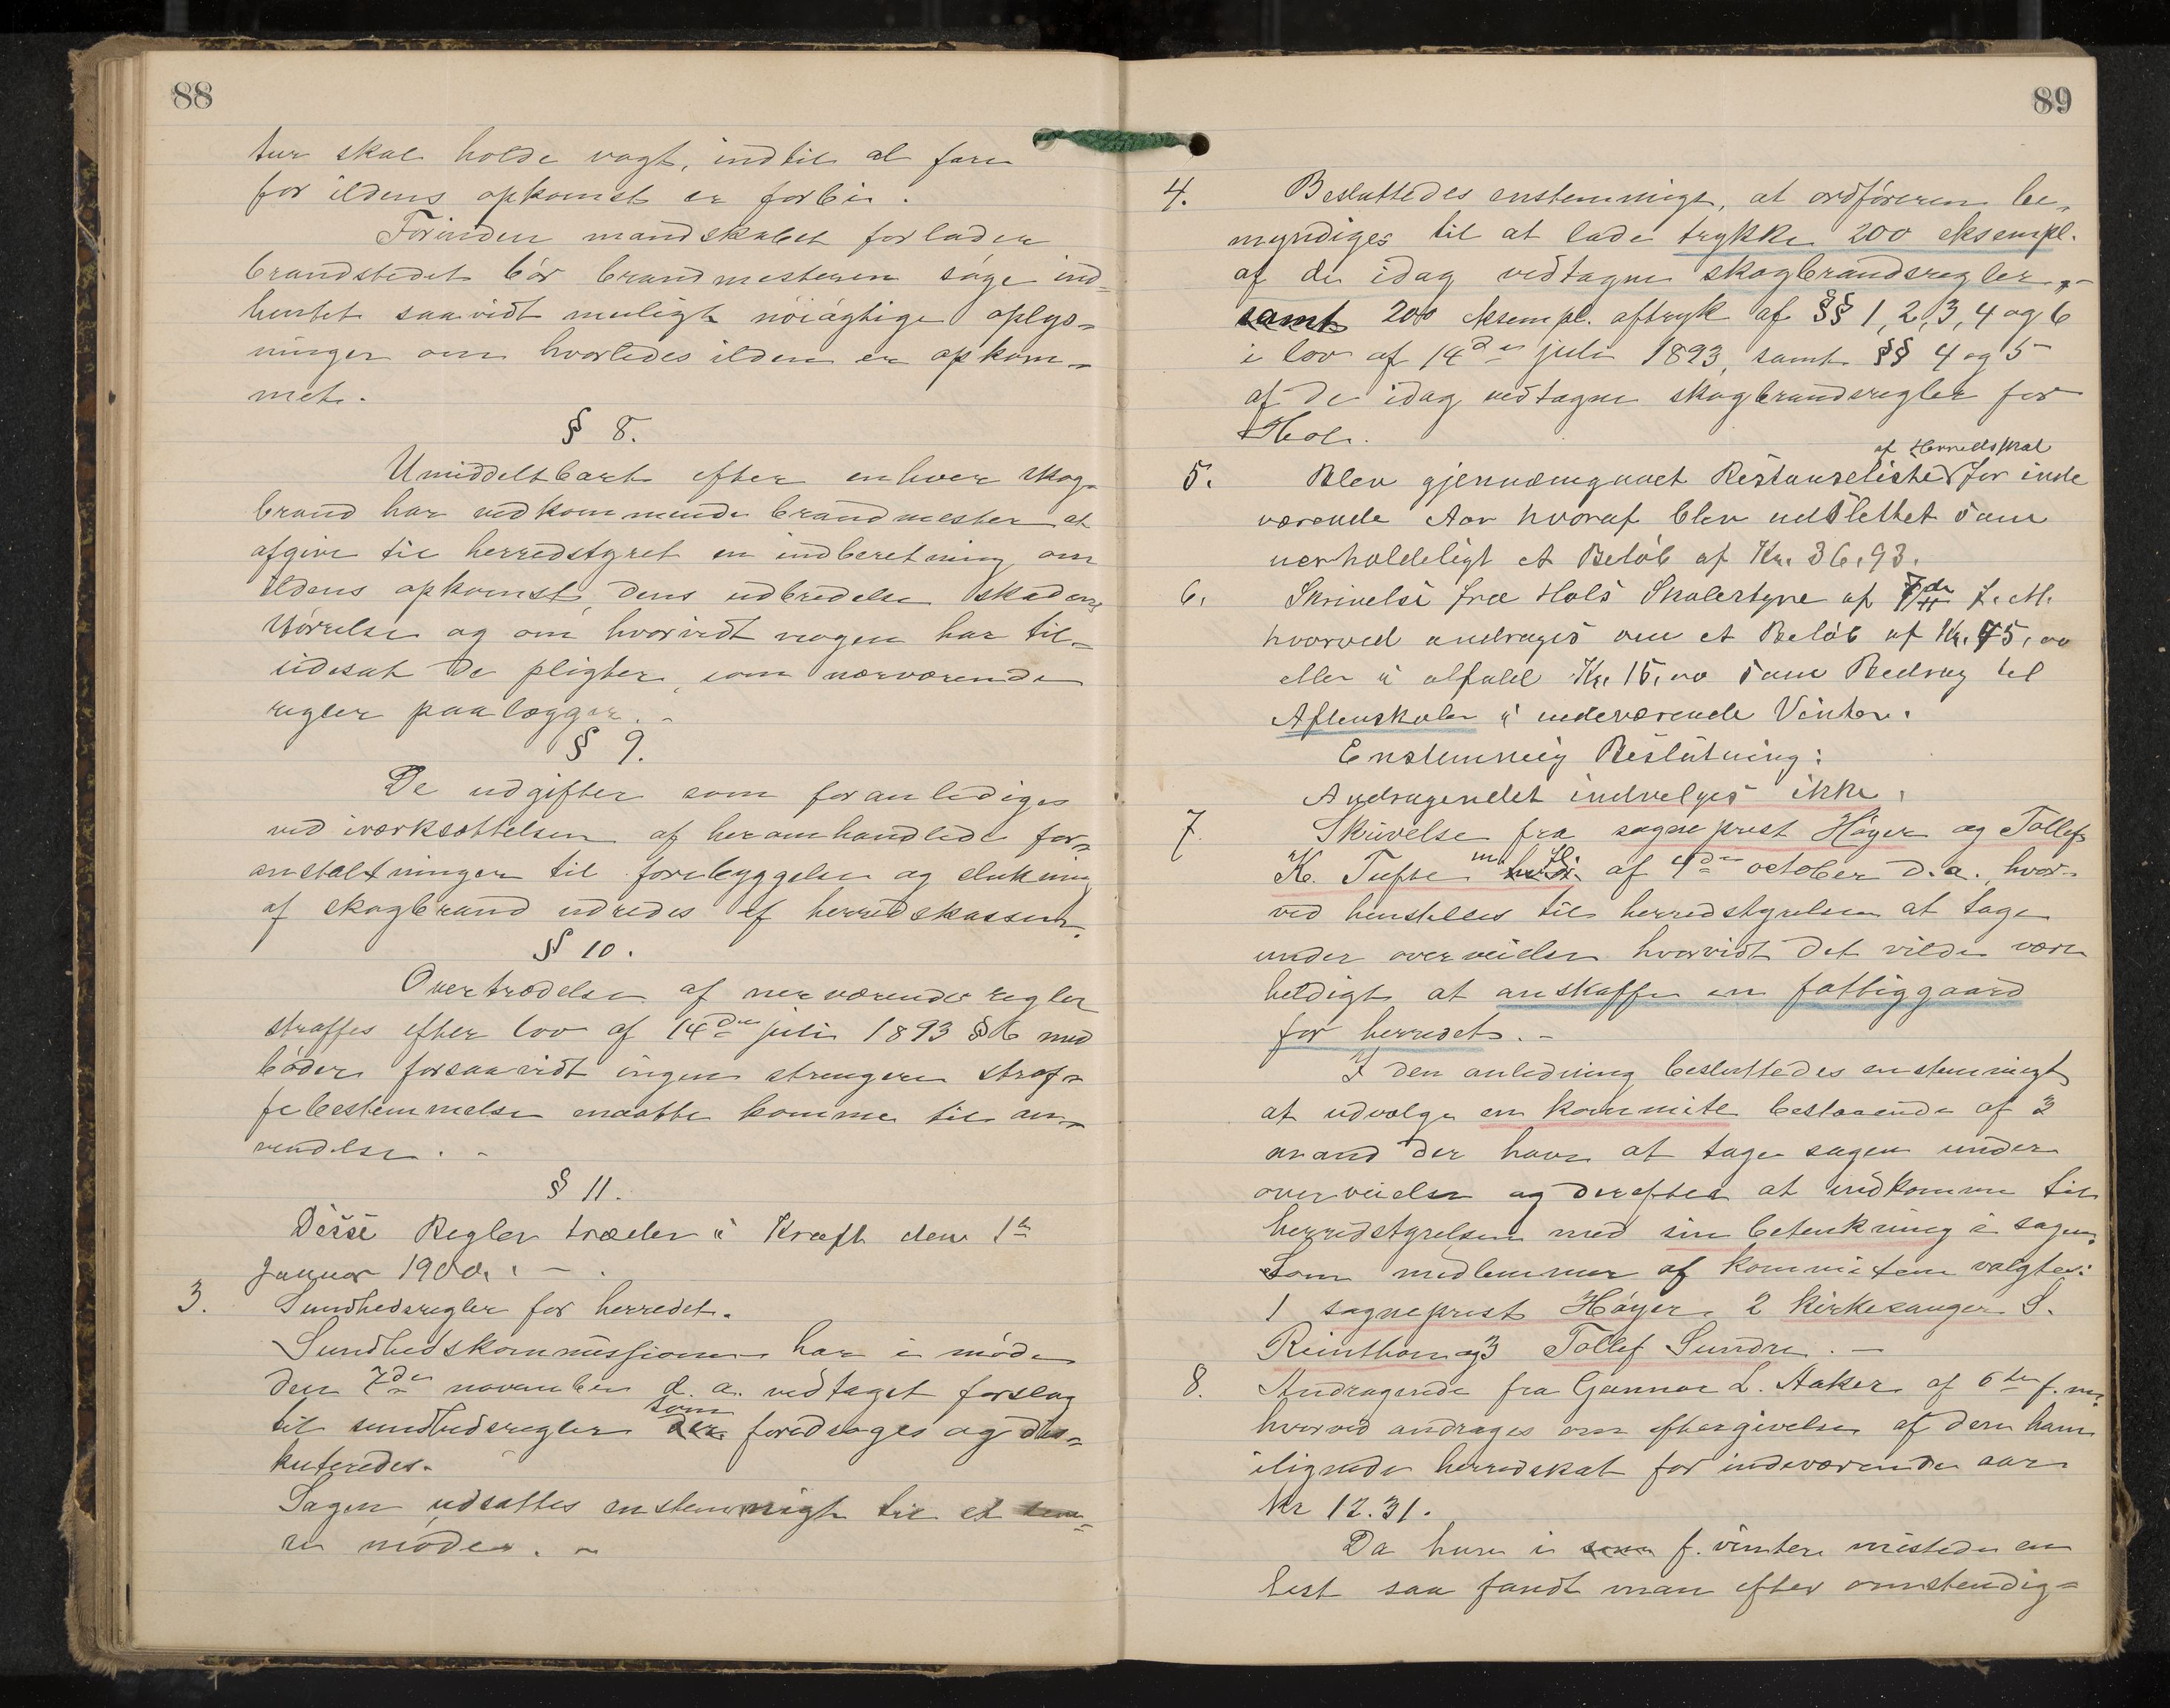 88
tur skal holde vagt, indtil al fare
for ildens opkomst er forbi.
Förinden mandskabet forlader
brandstedet bör brandmesteren söge ind-
hentet saavidt muligt nöiagtige oplys-
ninger om hvorledes ilden er opkom-
met.
§ 8.
Umiddelbart efter enhver skog-
brand har vedkommende brandmester at
afgive til herredstyret en indberetning om
ildens opkomst, dens udbredelse skadens
störrelse og om hvorvidt nogen har til-
sidesat de pligter, som nærværende
regler paalægger. -
§ 9.
De udgifter som foranlediges
ved iværksættelsen af heromhandlede for-
anstaltninger til forebyggelse og slukning
af skogbrand udredes af herredskassen.
§ 10.
Overtrædelse af nerværende regler
straffes efter lov af 14de juli 1893 § 6 med
böder forsaavidt ingen strengere straf-
febestemmelse maatte komme til an-
vendelse. -
§ 11.
Disse Regler træder i Kraft den 1te
Januar 1900. -
3. Sundhedsregler for herredet.
Sundhedskommissionen har i möde
den 7de november d. a. vedtaget forslag
til sundhedsregler der som foredroges og dis-
kuteredes.
Sagen udsattes enstemmigt til et
re möde. -
89
4. Besluttedes enstemmigt, at ordföreren be-
myndiges til at lade trykke 200 eksempl.
af de idag vedtagne skogbrandsregler, -
samt 200 eksempl. aftryk af §§ 1, 2, 3, 4 og 6
i lov af 14den juli 1893, samt §§ 4 og 5
af de idag vedtagne skogbrandsregler for
Hol.
af Herredsskat
5. Blev gjennemgaaet Restanseliste for inde
værende Aar hvoraf blev udslettet som
uerholdeligt et Belöb af Kr. 36,93.
6. Skrivelse fra Hols Skolestyre af 7de f. M.
hvorved androges om et Belöb af Kr. 75,00
eller i alfald Kr. 15,00 som Bedrag til
Aftenskoler i indeværende Vinter.
Enstemmig Beslutning:
Andragendet indvilges ikke.
7. Skrivelse fra sogneprest Höyer og Tollef
K. Tufte m. fl. af 4de october d. a., hvor-
ved henstilles til herredstyrelsen at tage
under overveielse hvorvidt det vilde være
heldigt at anskaffe en fattiggaard
for herredet. -
I den anledning besluttedes enstemmigt
at udvælge en kommite bestaaende af 3
mand der have at tage sagen under
overveielse og derefter at indkomme til
herredstyrelsen med sin betenkning i sagen.
Som medlemmer af kommiteen valgtes:
1 sogneprest Höyer, 2 kirkesanger S.
Reinthon og 3 Tollef Sundre. -
8. Andragende fra Gunnar L. Aaker af 6te f. m.
hvorved andrages om eftergivelse af den ham
ilignede herredskat for indeværende aar
kr 12.31.
Da han i f. vinter mistede en
hest saa fandt man efter omstendig-